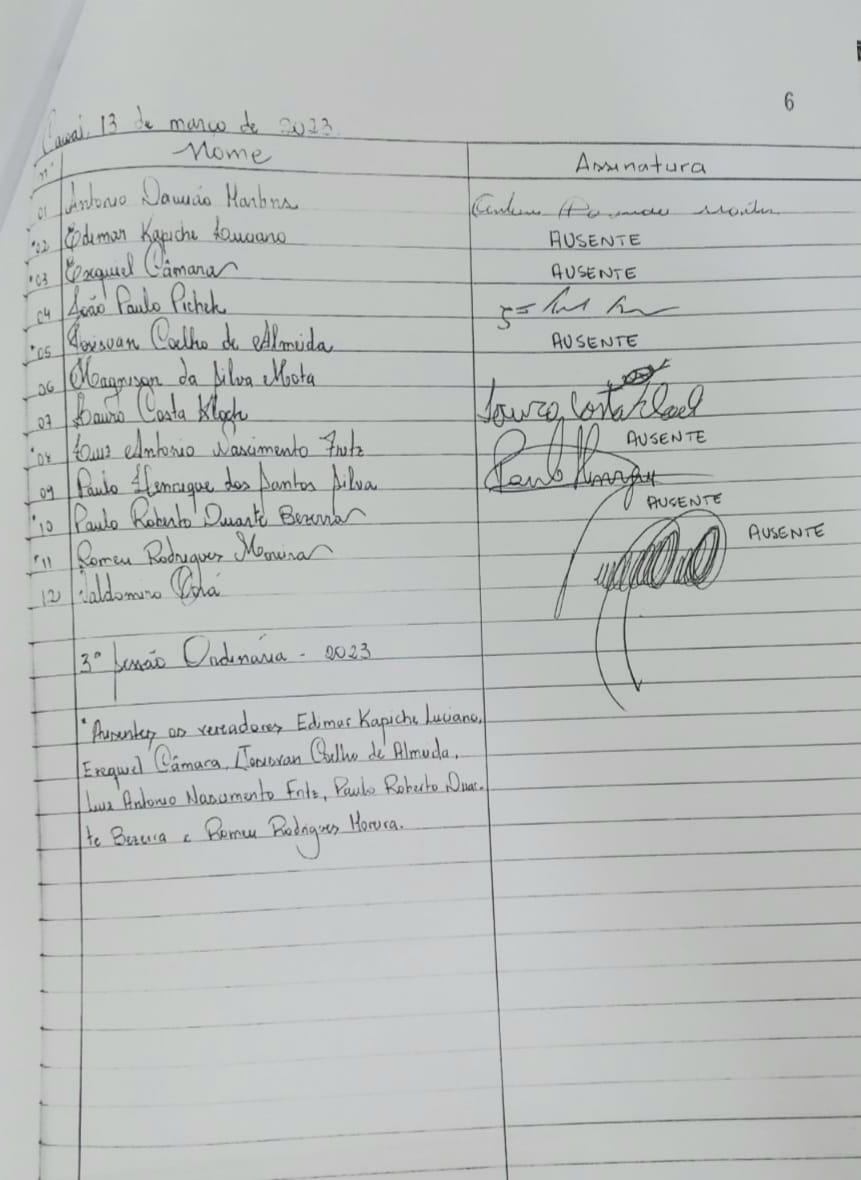 6
Cacoal, 13 de março de 2023.
nº Nome Assinatura
01 Antonio Damião Martins
*02 Edimar Kapiche Luciano AUSENTE
*03 Ezequiel Câmara AUSENTE
04 João Paulo Pichek
*05 Joisvan Coelho de Almeida AUSENTE
06 Magnison da Silva Mota
07 Lauro Costa Kloch Lauro Costa Kloch
*08 Luiz Antonio Nascimento Fritz AUSENTE
09 Paulo Henrique dos Santos Silva Paulo Henrique
*10 Paulo Roberto Duarte Bezerra AUSENTE
*11 Romeu Rodrigues Moreira AUSENTE
12 Valdomiro Corá
3ª Sessão Ordinária - 2023
*Ausentes os vereadores Edimar Kapiche Luciano,
Ezequiel Câmara, Coelho de Almeida,
Luiz Antonio Nascimento Fritz, Paulo Roberto Duar-
te Bezerra e Romeu Rodrigues Moreira.